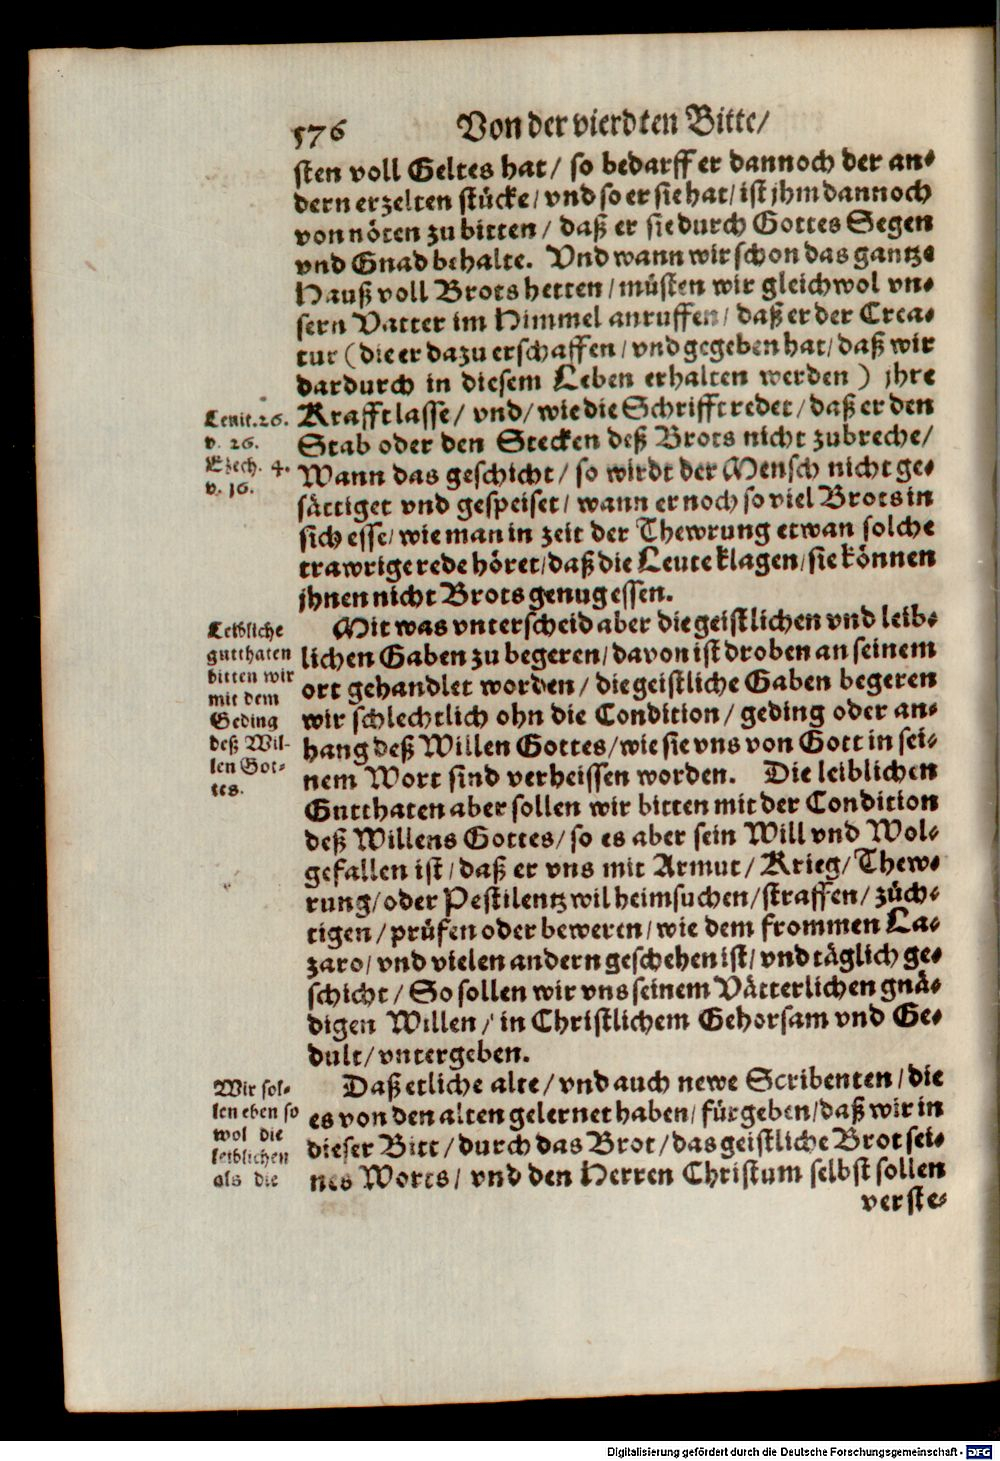 576 Von der vierdten Bitte/
sten voll Geltes hat/ so bedarff er dannoch der an-
dern erzelten stücke/ vnd so er sie hat/ ist jhm dannoch
von nöten zu bitten/ daß er sie durch Gottes Segen
vnd Gnad behalte. Vnd wann wir schon das gantze
Hauß voll Brots hetten/ müsten wir gleichwol vn-
sern Vatter im Himmel anruffen/ daß er der Crea-
tur (die er dazu erschaffen/ vnd gegeben hat/ daß wir
dardurch in diesem Leben erhalten werden) jhre
Krafft lasse/ vnd/ wie die Schrifft redet/ daß er den
Stab oder den Stecken deß Brots nicht zubreche/
Wann das geschicht/ so wirdt der Mensch nicht ge-
sättiget vnd gespeiset/ wann er noch so viel Brots in
sich esse/ wie man in zeit der Thewrung etwan solche
trawrige rede höret/ daß die Leute klagen/ sie können
jhnen nicht Brots genug essen.
Levit. 26.
v. 26.
Ezech. 4.
v. 16.
Mit was vnterscheid aber die geistlichen vnd leib-
lichen Gaben zu begeren/ davon ist droben an seinem
ort gehandlet worden/ die geistliche Gaben begeren
wir schlechtlich ohn die Condition/ geding oder an-
hang deß Willen Gottes/ wie sie vns von Gott in sei-
nem Wort sind verheissen worden. Die leiblichen
Gutthaten aber sollen wir bitten mit der Condition
deß Willens Gottes/ so es aber sein Will vnd Wol-
gefallen ist/ daß er vns mit Armut/ Krieg/ Thew-
rung/ oder Pestilentz wil heimsuchen/ straffen/ züch-
tigen/ prüfen oder beweren/ wie dem frommen La-
zaro/ vnd vielen andern geschehen ist/ vnd täglich ge-
schicht/ So sollen wir vns seinem Vätterlichen gnä-
digen Willen/ in Christlichem Gehorsam vnd Ge-
dult/ vntergeben.
Leibliche
gutthaten
bitten wir
mit dem
Geding
deß Wil-
len Got-
tes.
Daß etliche alte/ vnd auch newe Scribenten/ die
es von den alten gelernet haben/ fürgeben/ daß wir in
dieser Bitt/ durch das Brot/ das geistliche Brot sei-
nes Worts/ vnd den Herren Christum selbst sollen
verste-
Wir sol-
len eben so
wol die
leiblichen
als die
Digitalisierung gefördert durch die Deutsche Forschungsgemeinschaft - DFG